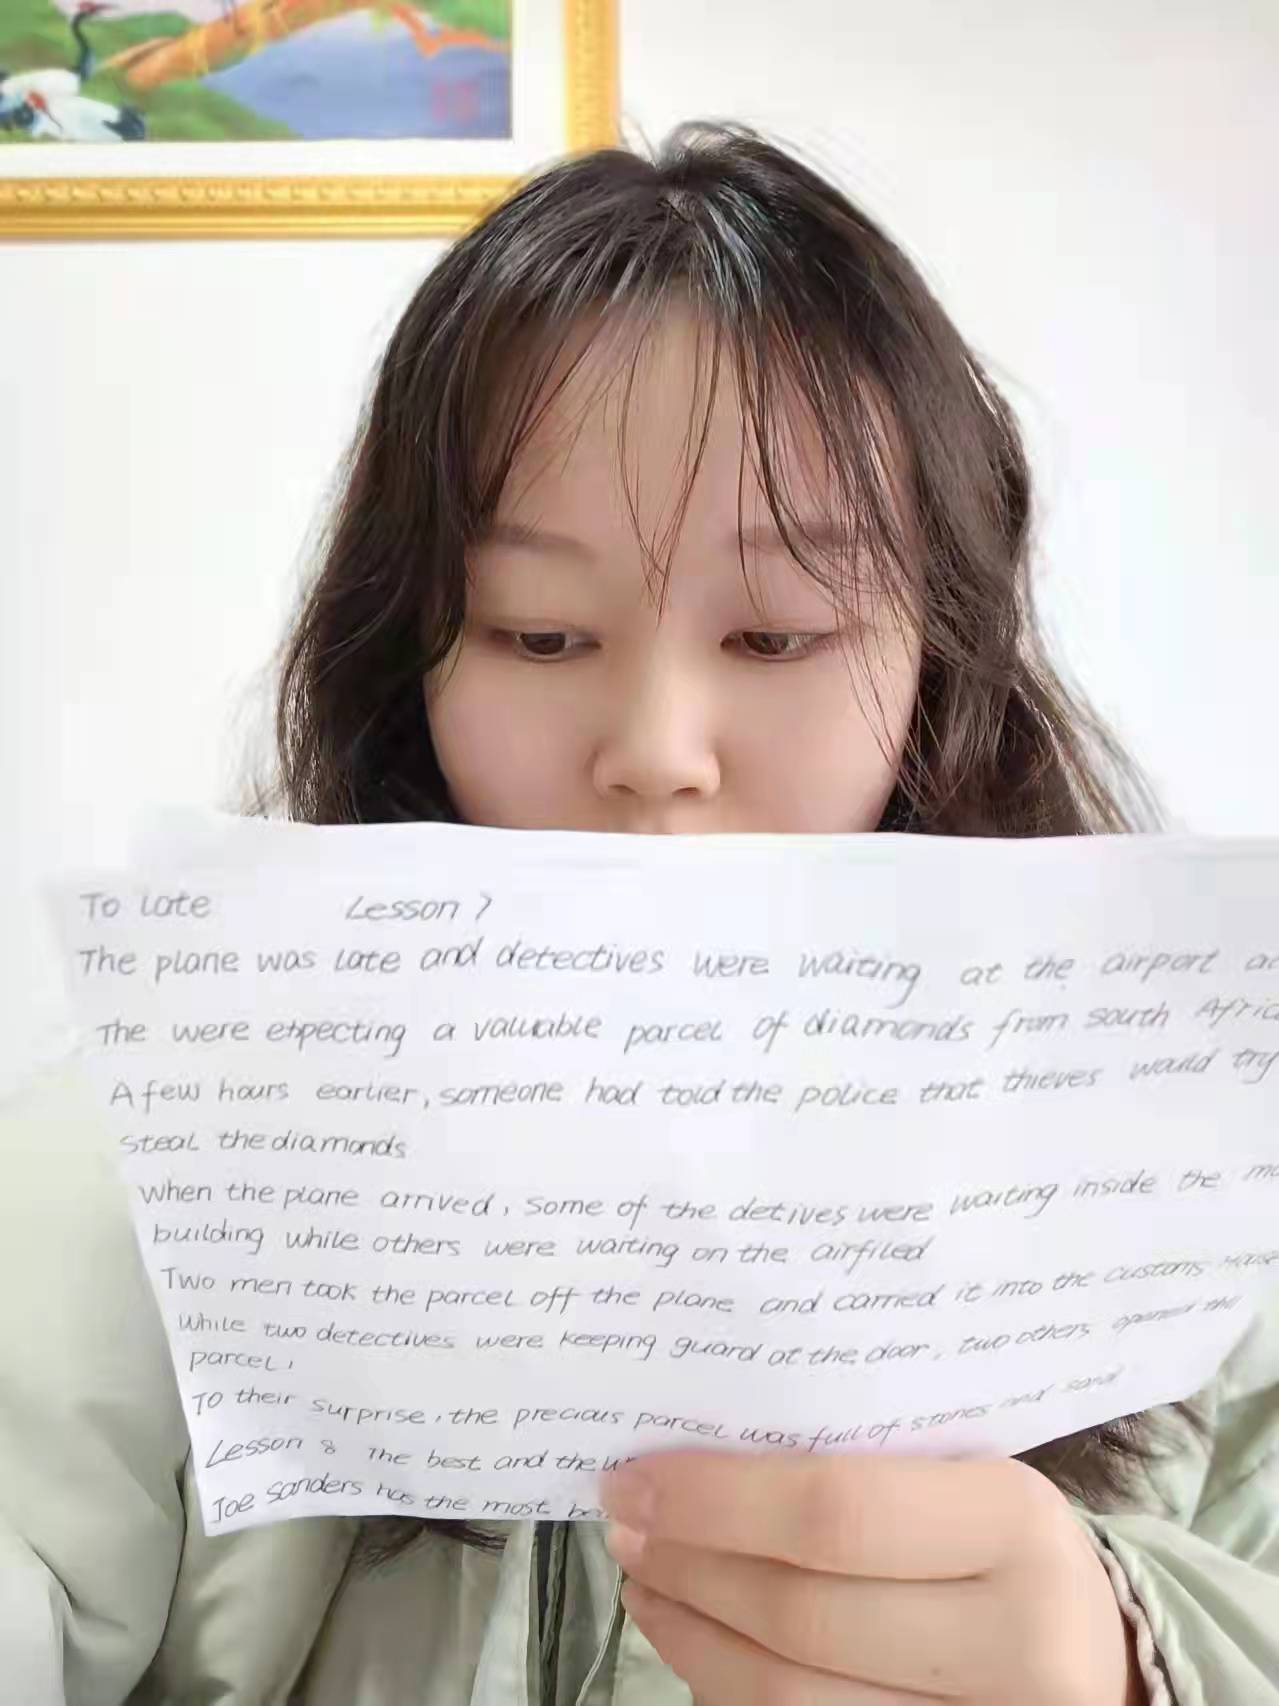 To late Lesson 7
The plane was late and detectives were waiting at the airport
The were ehpecting a valuable parcel of diamonds from south Afric
A few hours earlier, someone had told the police that thieves would try
steal the diamonds
when the plane arrived, some of the detives were waiting inside the
building while others were waiting on the airfiled
Two men took the parcel off the plane and carried it into the customs House
while two detectives were keeping guard at the door, two others opened the
parcel,
To their surprise, the precious parcel was full of stones and sand
Lesson 8 The best and the
Joe sanders has the most